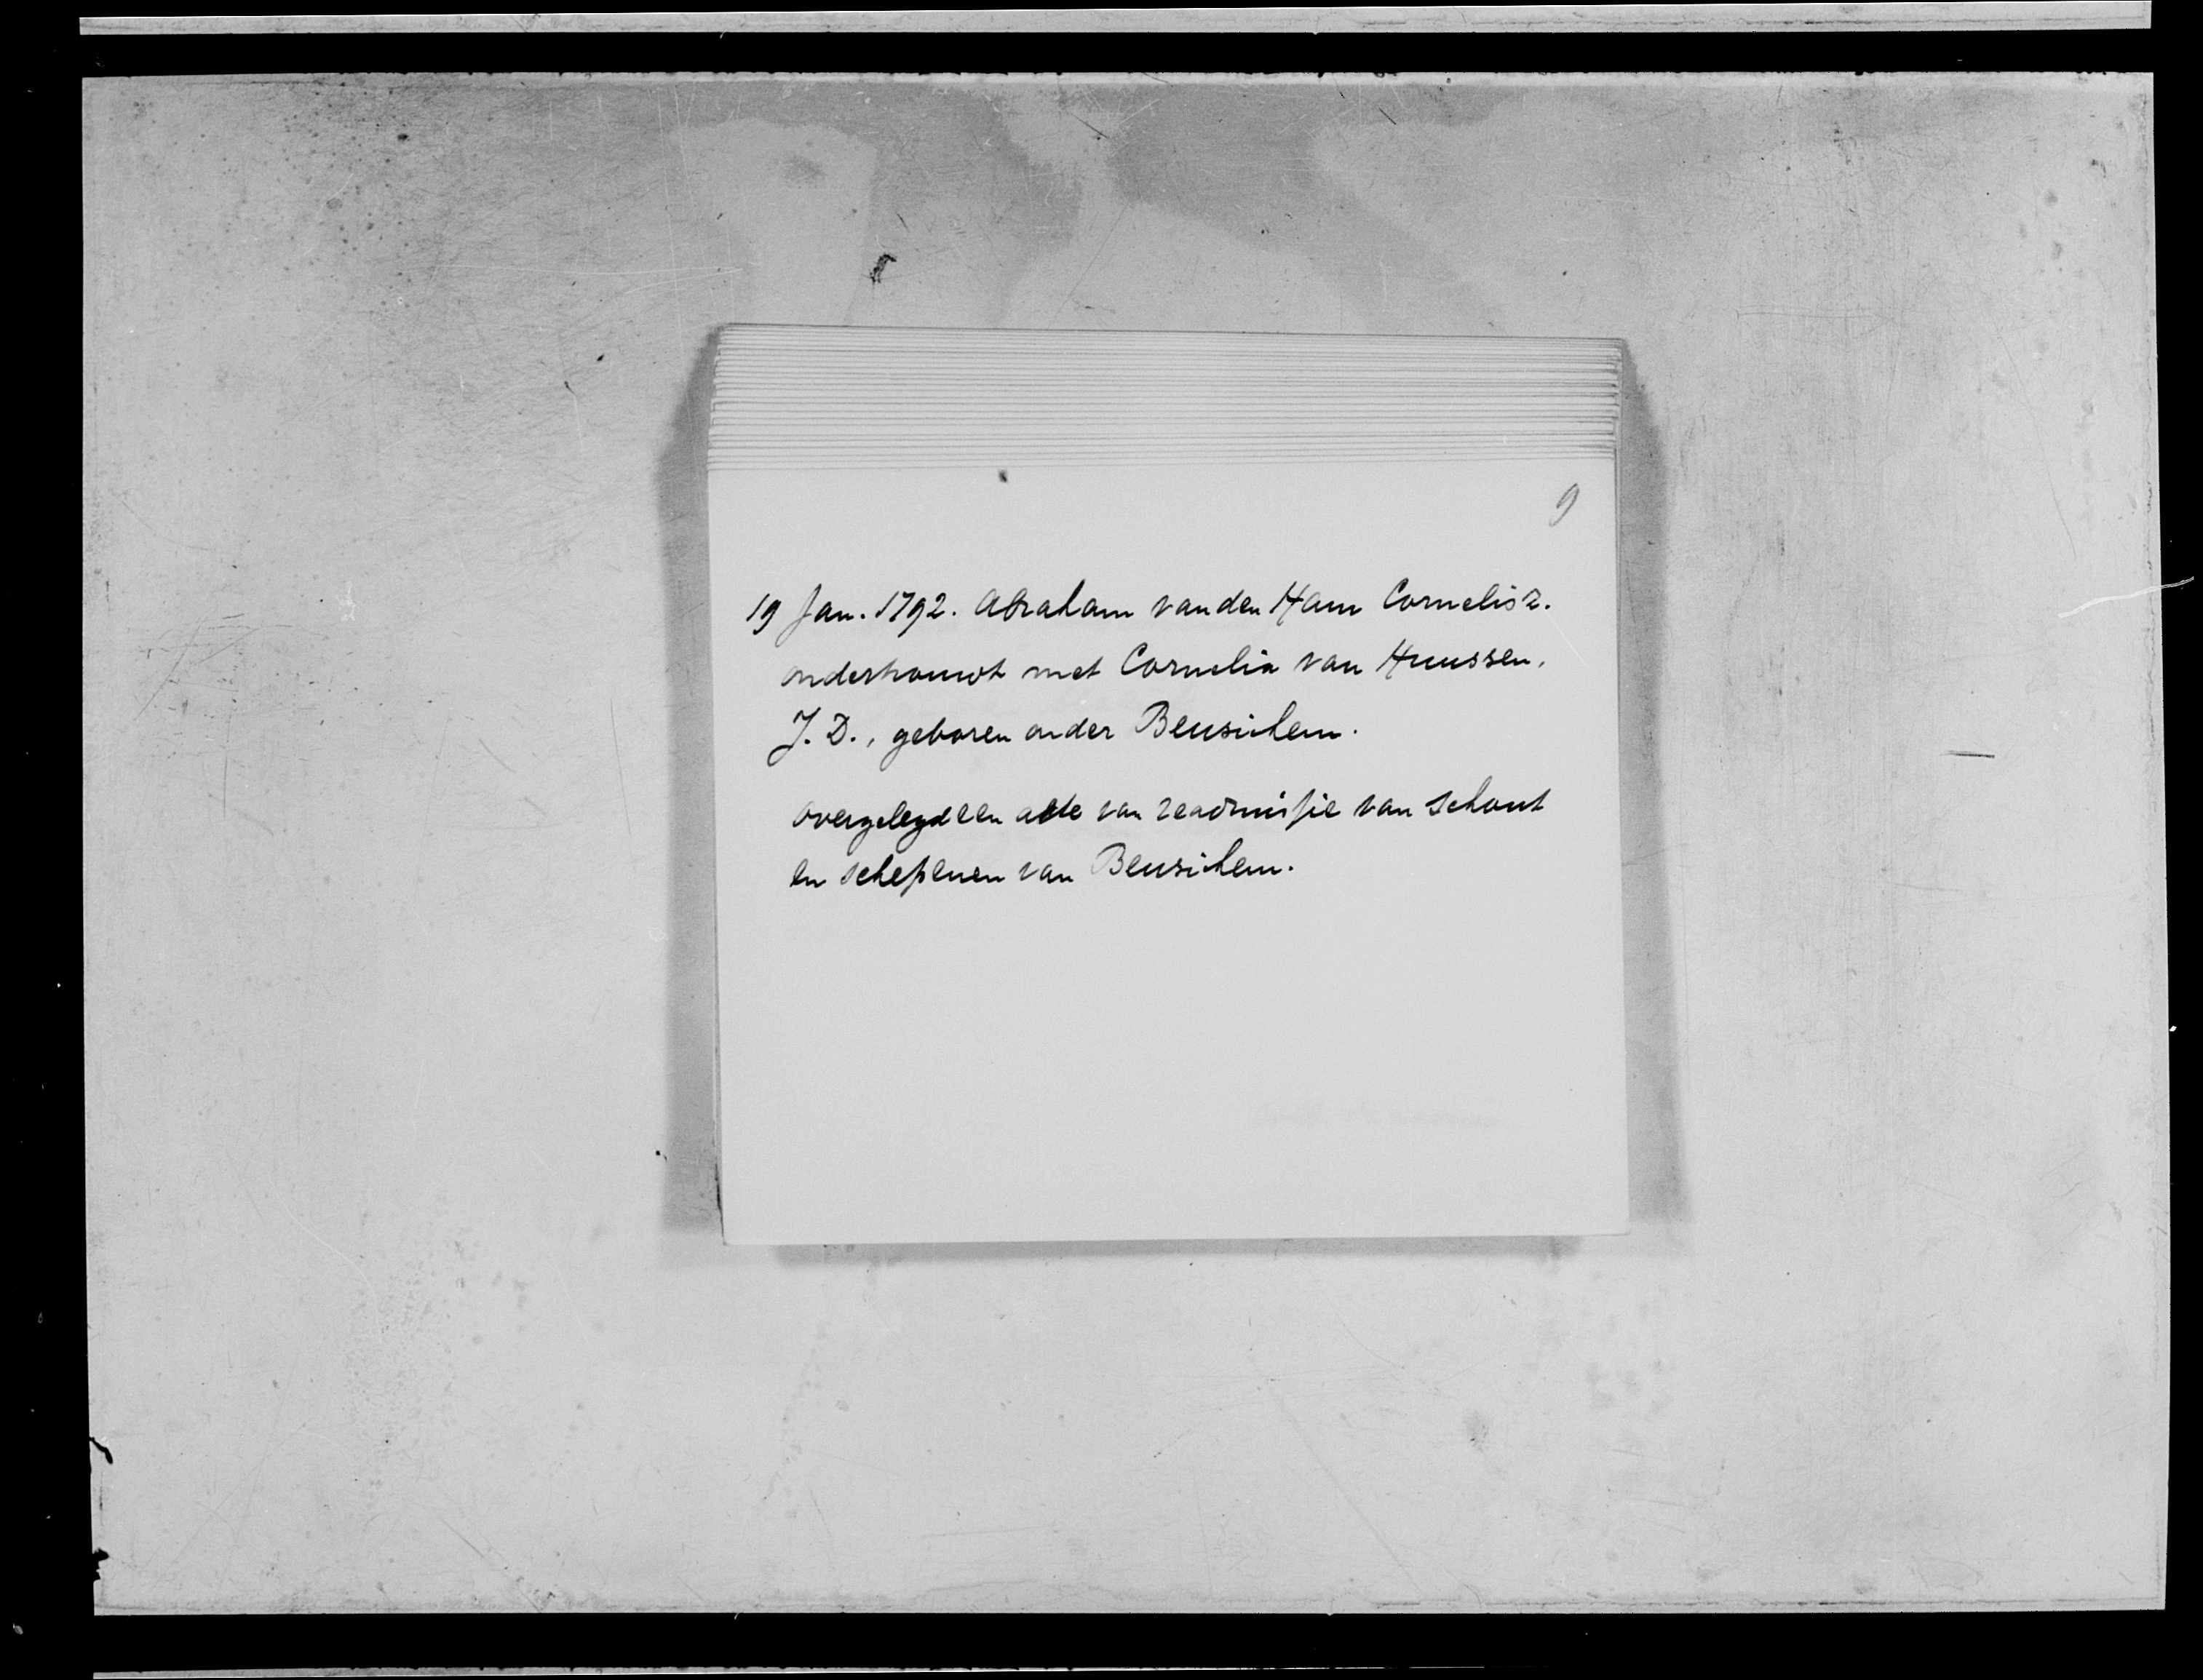 9
19 Jan. 1792. Abraham van den Ham Cornelisz.
ondertrouwt met Cornelia van Huussen,
J. D., geboren onder Beusichem.
overgelegd een akte van readmissie van Schout
en schepenen van Beusichem.